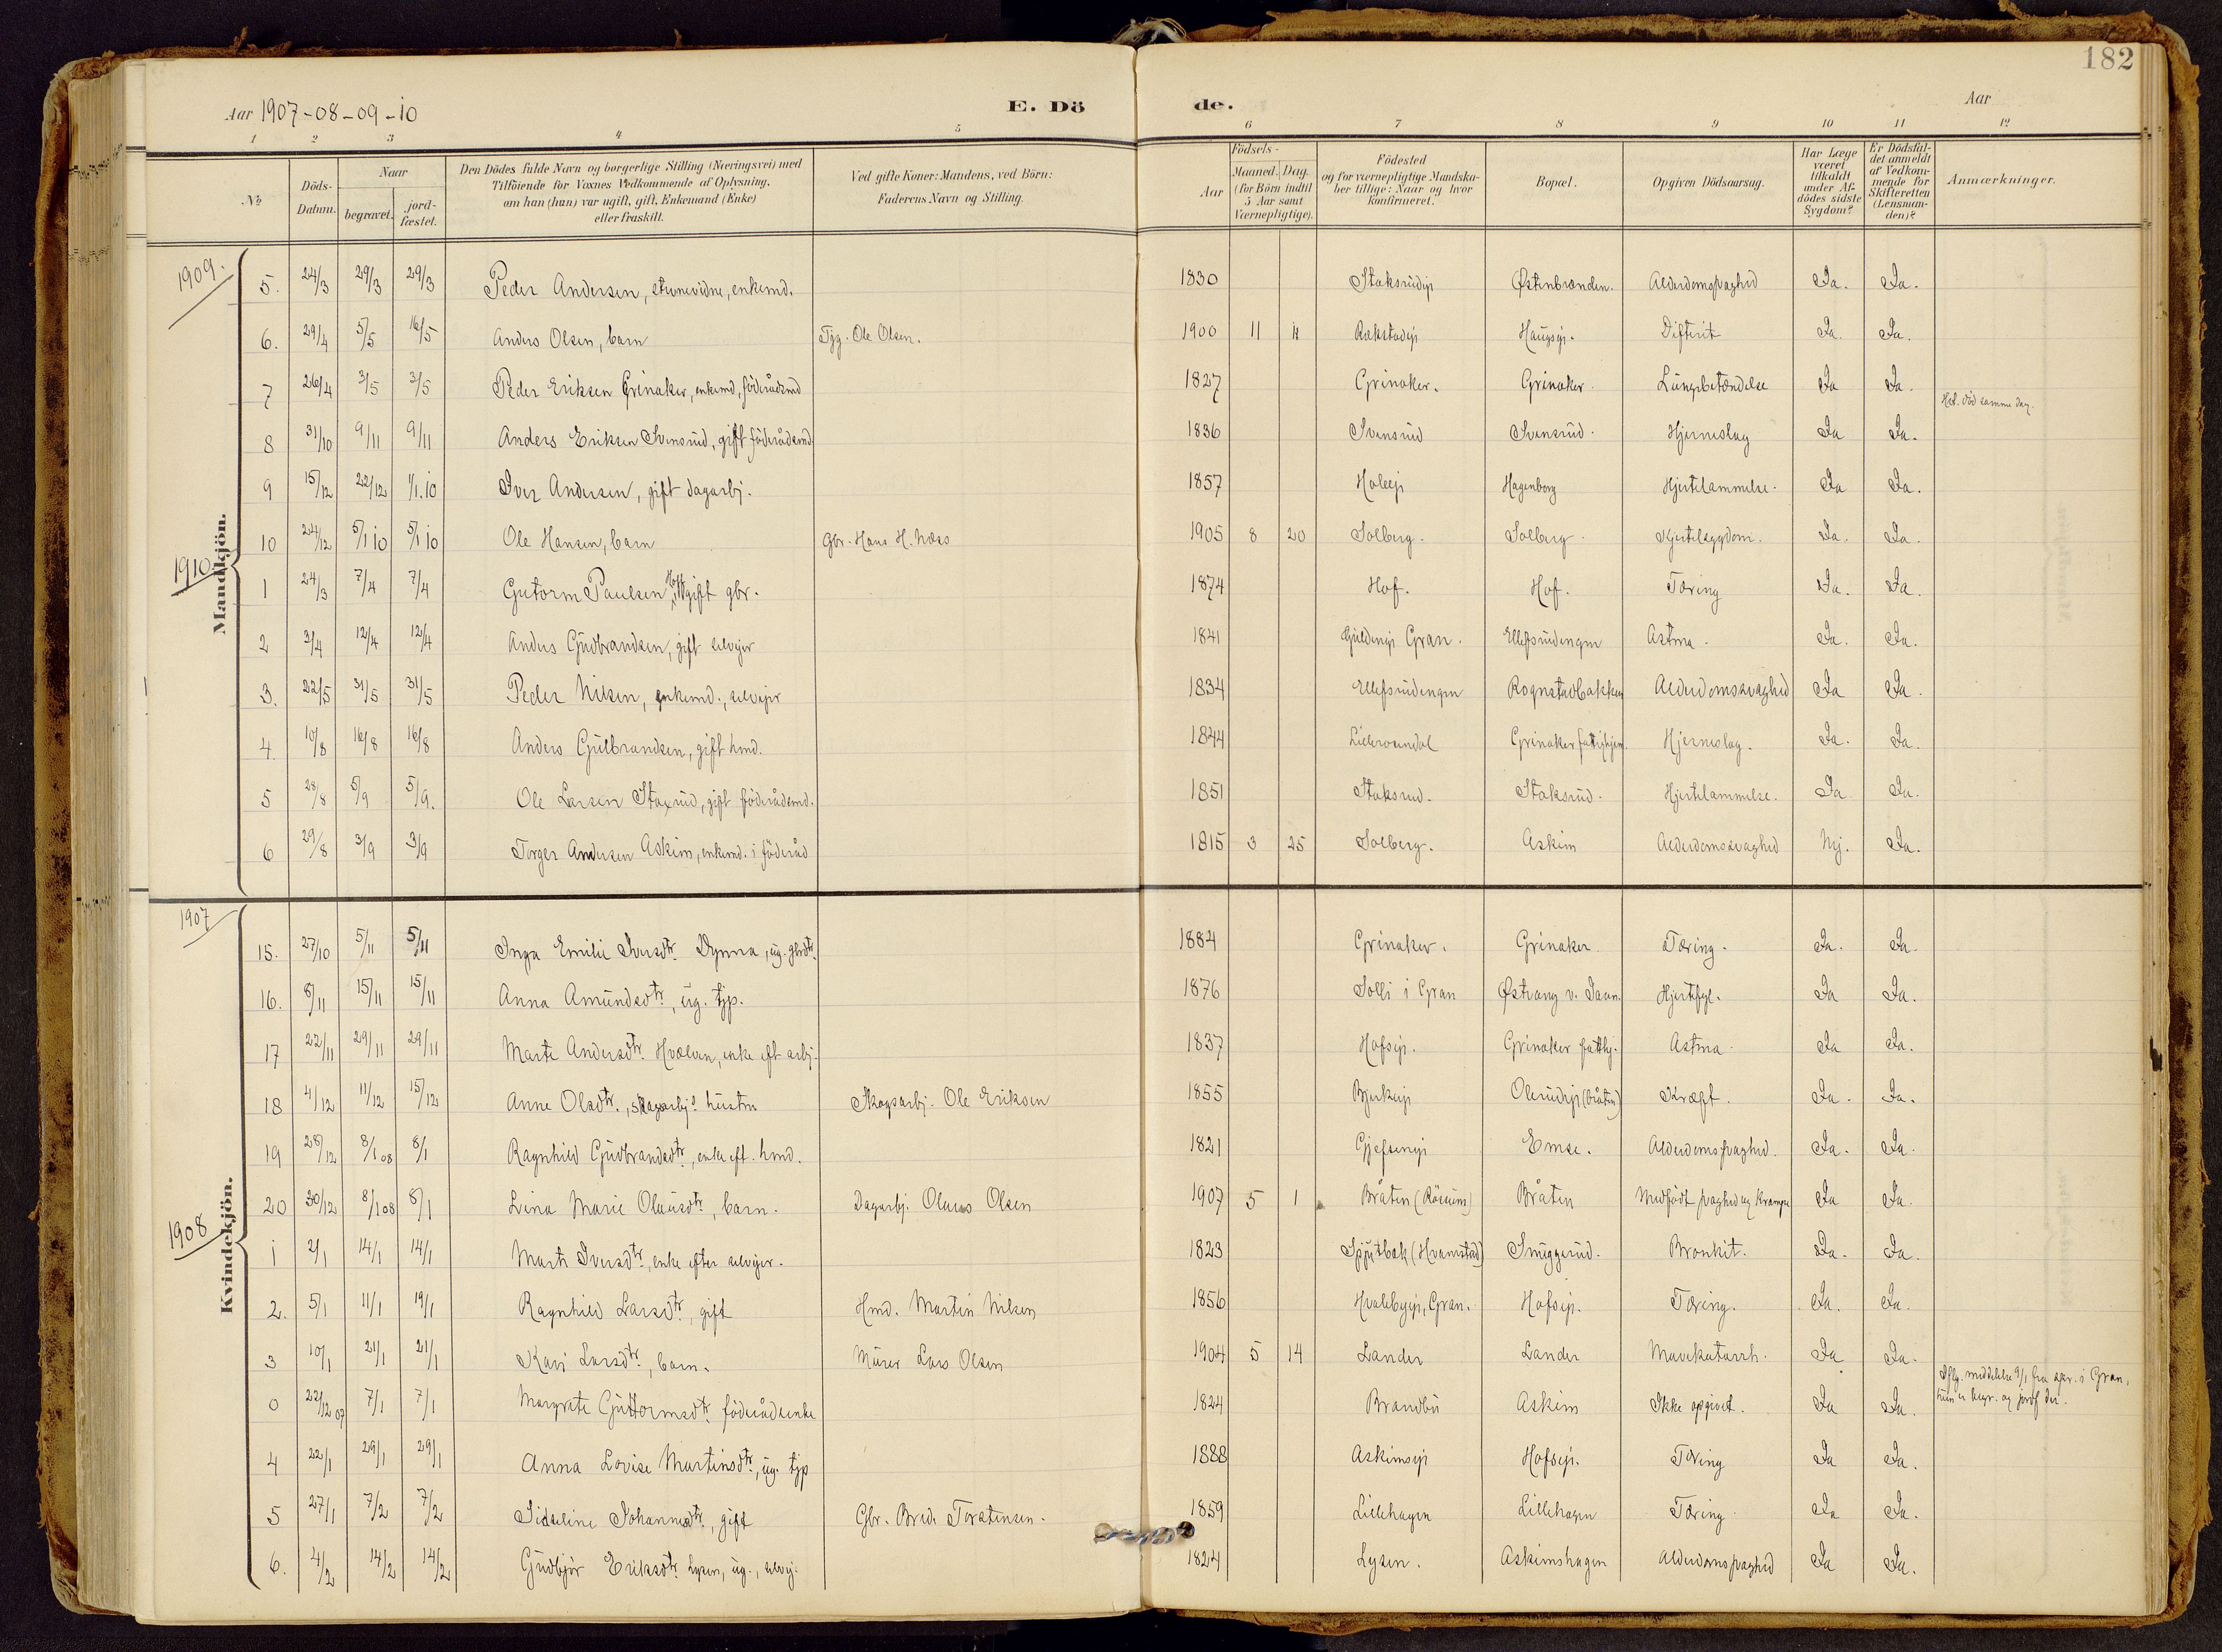 182
Aar 1907-08-09-10 E. Dö de. Aar
1 2 3 4 5 6 7 8 9 10 11 12
№
Döds-Datum.
Naar
begravet.
jord-fæstet.
Den Dödes fulde Navn og borgerlige Stilling (Næringsvei) med
Tilföiende for Voxnes Vedkommende af Oplysning.
om han (hun) var ugift, gift, Enkemand (Enke)
eller fraskilt.
Ved gifte Koner: Mandens, ved Börn:
Faderens Navn og Stilling.
Födsels-
Aar
Maaned. Dag.
(for Börn indtil
5 Aar samt
Værnepligtige).
Födested
og for værnepligtige Mandska-
ber tillige: Naar og hvor
konfirmeret.
Bopæl.
Opgiven Dödsaarsag.
Har Læge
været
tilkaldt
under Af-
dödes sidste
Sygdom?
Er Dödsfal-
det anmeldt
af Vedkom-
mende for
Skifteretten
(Lensman-
den)?
Anmærkninger.
1909.
Mandkjön.
5. 24/3 29/3 29/3 Peder Andersen, stevnevidne, enkemd. 1830 Staksrudei Østenbrenden. Alderdomssvaghed Ja. Ja.
6. 29/4 5/5 16/5 Anders Olsen, barn Tjg. Ole Olsen. 1900 11 Rækstadei Haugsei. Difterit Ja. Ja.
7 26/4 3/5 3/5 Peder Eriksen Grinaker, enkemd, föderådsmd 1827 Grinaker. Grinaker. Lungebetændelse Ja Ja.
8 31/10 9/11 9/11 Anders Eriksen Svensrud, gift föderådsmd 1836 Svensrud Svensrud. Hjerneslag Ja Ja. Hef. død samme dag.
9 15/12 22/12 1/1.10 Iver Andersen, gift dagarbj. 1857 Holeei Hagenborg Hjertelammelse. Ja Ja.
10 24/12 5/1 10 5/1 10 Ole Hansen, barn Gbr. Hans H. Næss 1905 8 20 Solberg. Solberg. Hjertesygdom. Ja. Ja.
1910
1 24/3 7/4 7/4 Gutorm Paulsen Hof, gift gbr. 1874 Hof. Hof. Tæring Ja. Ja.
2 3/4 12/4 12/4 Anders Gudbrandsen, gift selveier 1841 Guldenei Gran. Ellefsrudengen Astma. Ja. Ja.
3. 22/5 31/5 31/5 Peder Nilsen, enkemd., selveier 1834 Ellefsrudengen Rognstadbakken Alderdomssvaghed Ja Ja.
4. 10/8 16/8 16/8 Anders Gulbrandsen, gift hmd. 1844 Grinaker fattighjem. Hjerneslag. Ja. Ja.
5 28/8 5/9 5/9. Ole Larsen Staxrud, gift föderådsmd. 1851 Staksrud. Staksrud. Hjertelammelse. Ja Ja.
6 29/8 3/9 3/9 Torger Andersen Askim, enkemd. i föderåd 1815 3 25 Solberg. Askim Alderdomssvaghed Nej. Ja.
1907
Kvindekjön.
15. 27/10 5/11 5/11 Inga Emilie Iversdtr. Dynna, ug. gbrdtr. 1884 Grinaker. Grinaker Tæring. Ja. Ja.
16. 8/11 15/11 15/11 Anna Amundsdtr., ug. tjp. 1876 Solli i Gran Østvang v. Jaren. Hjertefeil. Ja Ja.
17 22/11 29/11 29/11 Marte Andersdtr. Hvalen, enke eft arbj. 1837 Hofsei. Grinaker fattihj. Astma. Ja Ja.
18 4/12 11/12 15/12 Anne Olsdtr., skogsarbj.s hustru Skogsarbj. Ole Eriksen 1855 Bjerkeei Olerudei (bråten) Kræft. Ja. Ja.
19 28/12 8/1 08 8/1 Ragnhild Gudbrandsdtr., enke eft. hmd. 1821 Gjefsenei Emse. Alderdomssvaghed. Ja. Ja.
20 30/12 8/1 08 8/1 Lina Marie Olausdtr., barn. Dagarbj. Olaus Olsen 1907 5 1 Bråten (Røisum) Bråten Medfödt svaghed og krampe Ja Ja.
1908
1 2/1 14/1 14/1 Marte Iversdtr., enke efter selveier. 1823 Spjutbæk (Hvamstad) Smuggerud. Bronkit. Ja. Ja.
2. 5/1 11/1 19/1 Ragnhild Larsdtr., gift Hmd. Martin Nilsen 1856 Hvalebyei, Gran. Hofsei. Tæring. Ja. Ja.
3 10/1 21/1 21/1 Kari Larsdtr., barn. Murer Lars Olsen 1904 5 14 Lander Lander Mavekatarrh. Ja Ja.
0 22/12 07 7/1 7/1 Margrete Guttormsdtr. föderådsenke 1824 Brandbu Askim Ikke opgivet. Ja Ja. Iflg. meddelelse 9/1 fra spr. i Gran, hun er begr. og jordf. der.
4 22/1 29/1 29/1 Anna Lovise Martinsdtr., ug. tjp 1888 Askimsei Hofsei. Tæring Ja Ja.
5 27/1 7/2 7/2 Sidseline Johannesdtr., gift Gbr. Brede Torstensen. 1859 Lillehagen Lillehagen Tæring Ja Ja.
6. 4/2 14/2 14/2 Gudbjør Eriksdtr. Lysen, ug., selvej. 1824 Lysen. Askimshagen Alderdomssvaghed Ja Ja.